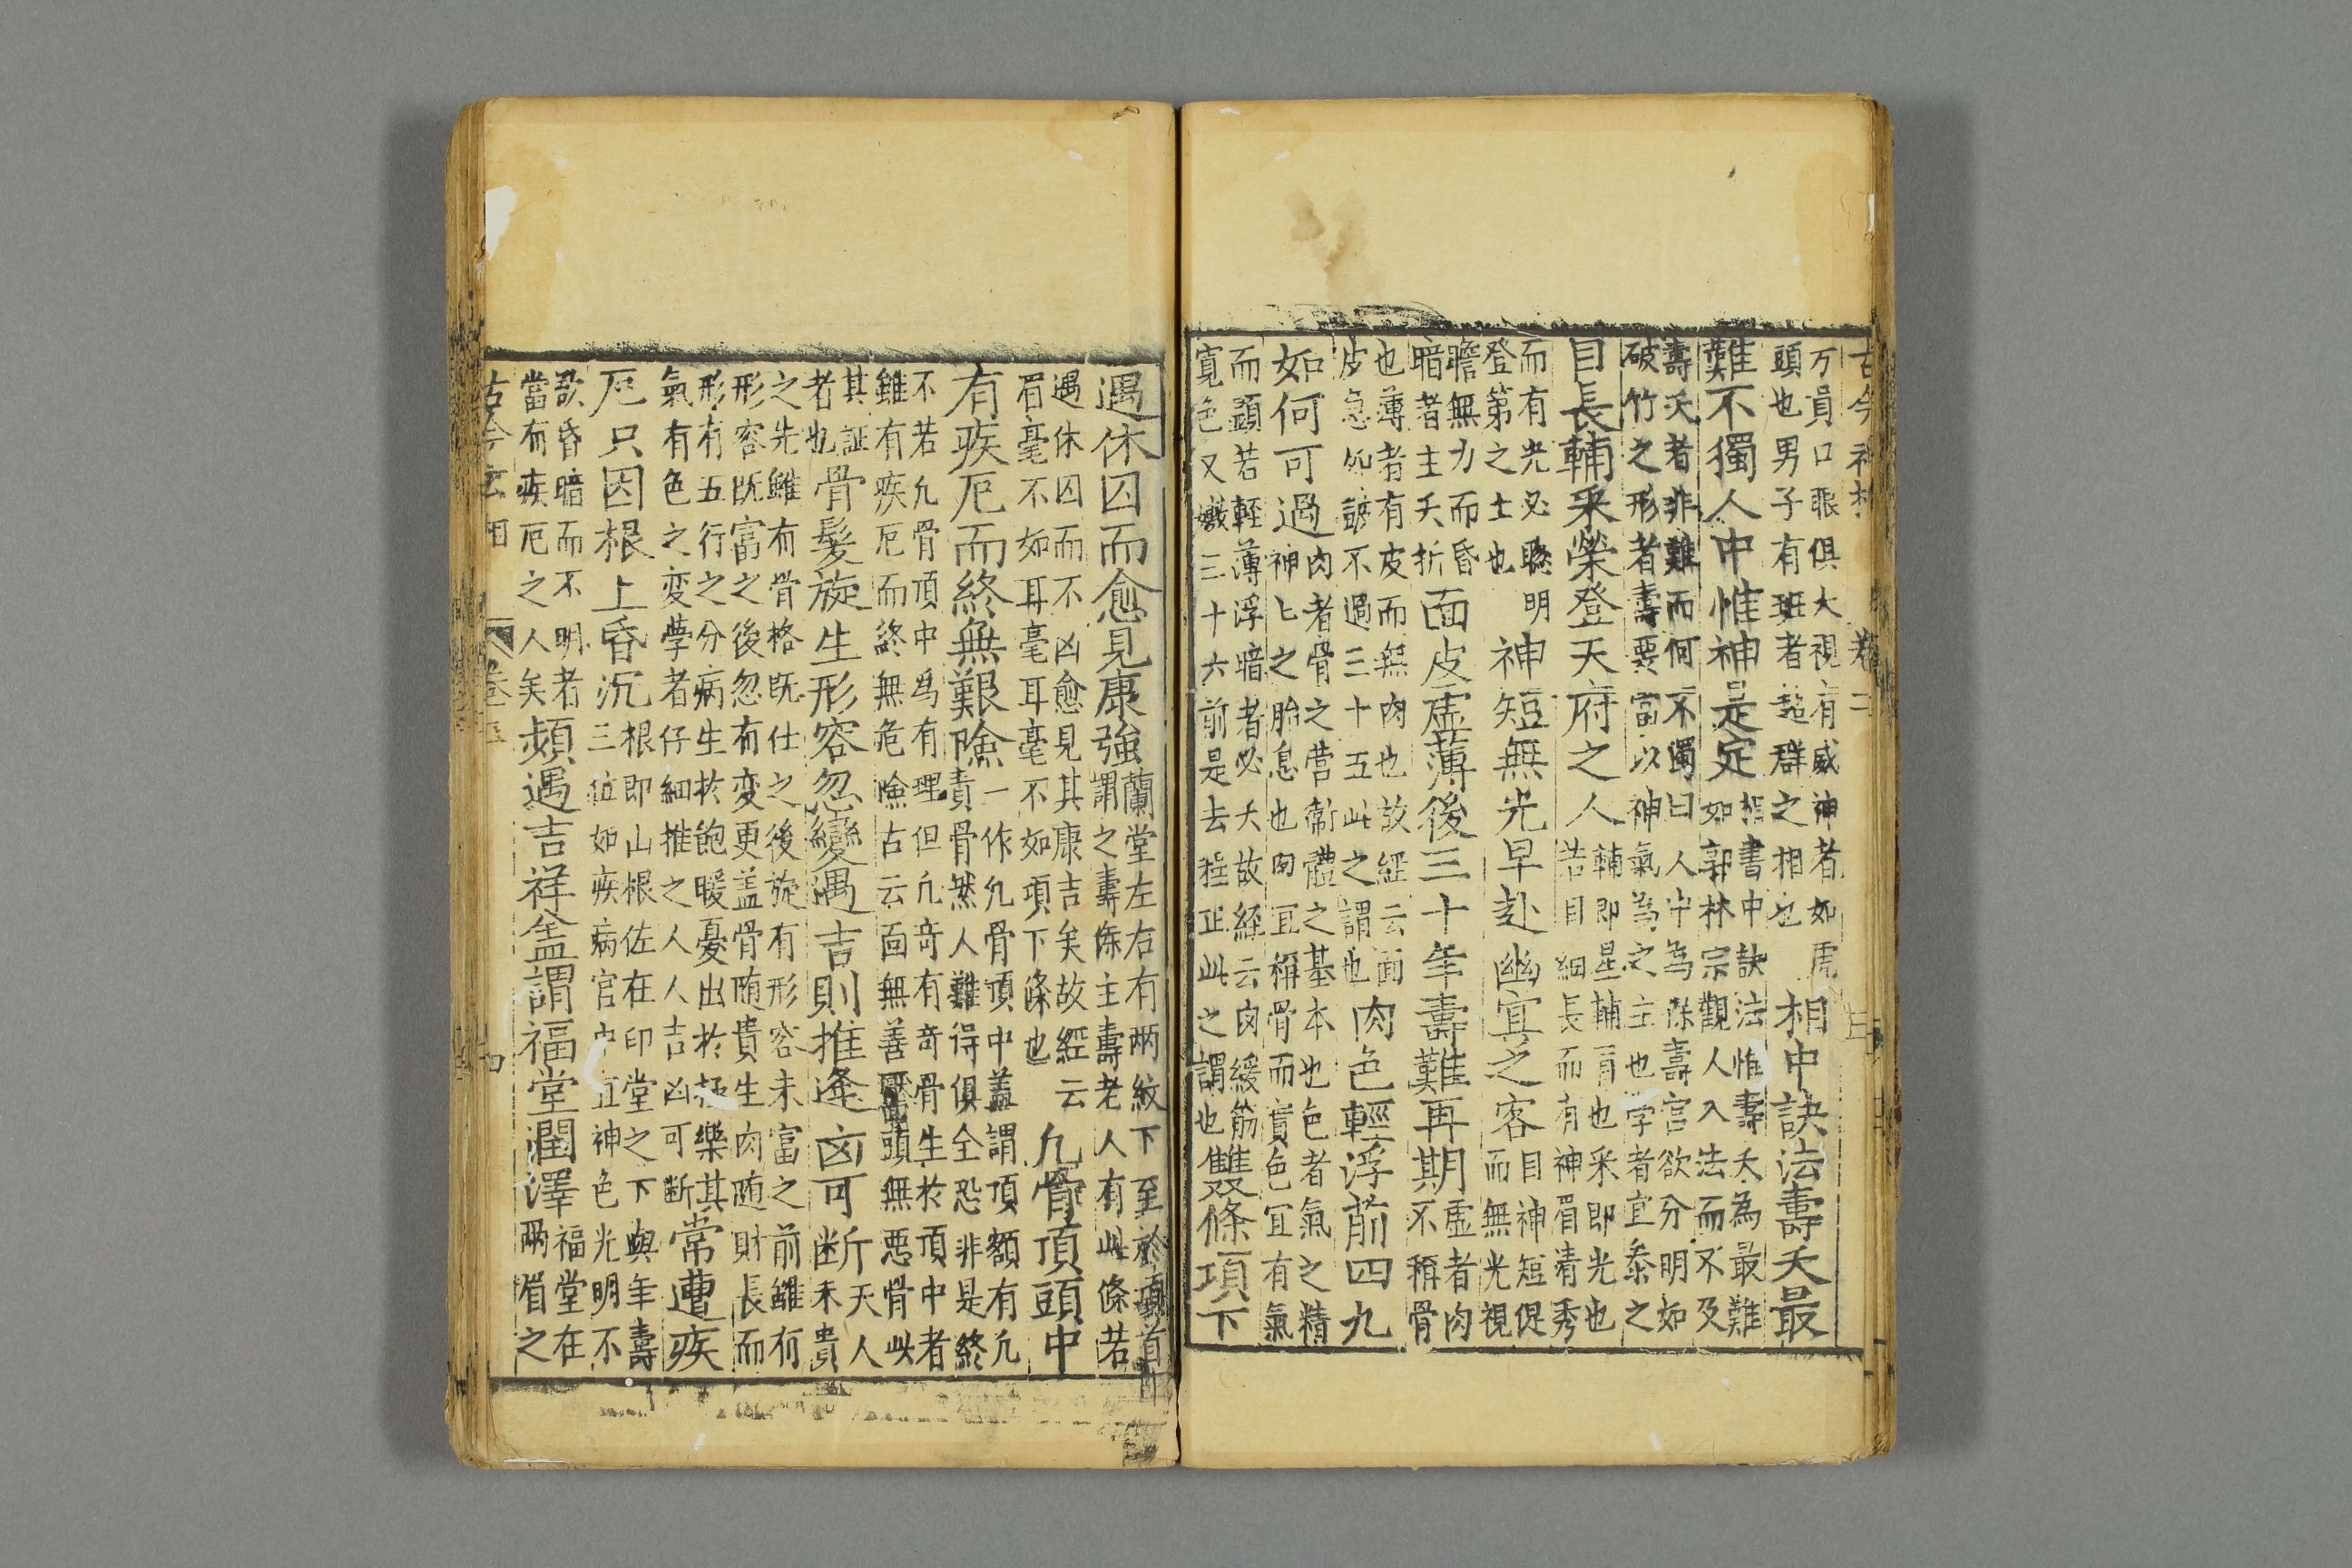 古今神相 卷二 三
方員口眼俱大視有威神者如虎
頭也男子有班者超群之相也
相中訣法壽夭最
難不獨人中惟神是定
相書中訣法惟壽夭為最難
如郭林宗觀人入法而不及
壽夭者非難而何不獨曰人中為保壽宮欲分明如
破竹之形者壽要當以神氣為之主也学者宜叅之
目長輔采榮登天府之人
輔即星輔眉也采即光也
若目細長而有神眉清秀
而有光必聰明
登第之士也
神短無光早赴幽冥之客
目神短促
而無光視
瞻無力而昏
暗者主夭折
面皮虛薄後三十年壽難再期
虛者肉
不稱骨
也薄者有皮而無肉也故經云面
皮急如諺不過三十五此之謂也
肉色輕浮前四九
如何可過
肉者骨之营衛體之基本也色者氣之精
神匕之胎息也肉宜稱骨而實色宜有氣
而顕若輕薄浮暗者必夭故経云肉緩筋
寬色又嫩三十六前是去程正此之謂也
雙條項下
遇休囚而愈見康強
蘭堂左右有两紋下至於項首
謂之壽絛主壽老人有此絛若
遇休囚而不凶愈見其康吉矣故經云
眉毫不如耳毫耳毫不如項下絛也
凢骨頂頭中
有疾厄而終無艱險
一作凢骨頂中盖謂頂額有凢
責骨然人難得俱全恐非是終
不若凢骨頂中為有理但凢竒有竒骨生於頂中者
雖有疾厄而終無危險古云面無善靨頭無悪骨此
其証
者也
骨髮旋生形容忽變遇吉則推逢凶可断
天人
未貴
之先雖有骨格既仕之後旋有形容未富之前雖有
形容既富之後忽有変更盖骨随貴生肉随財長而
形有五行之分病生於飽暖憂出於極樂其
氣有色之変學者仔細推之人人吉凶可断
常遭疾
厄只因根上昏沉
根即山根佐在印堂之下與年壽
三位如疾病官中宜神色光明不
欲昏暗而不明者
當有疾厄之人矣
頻遇吉祥盖謂福堂潤澤
福堂在
兩眉之
古今玄相 卷五 四